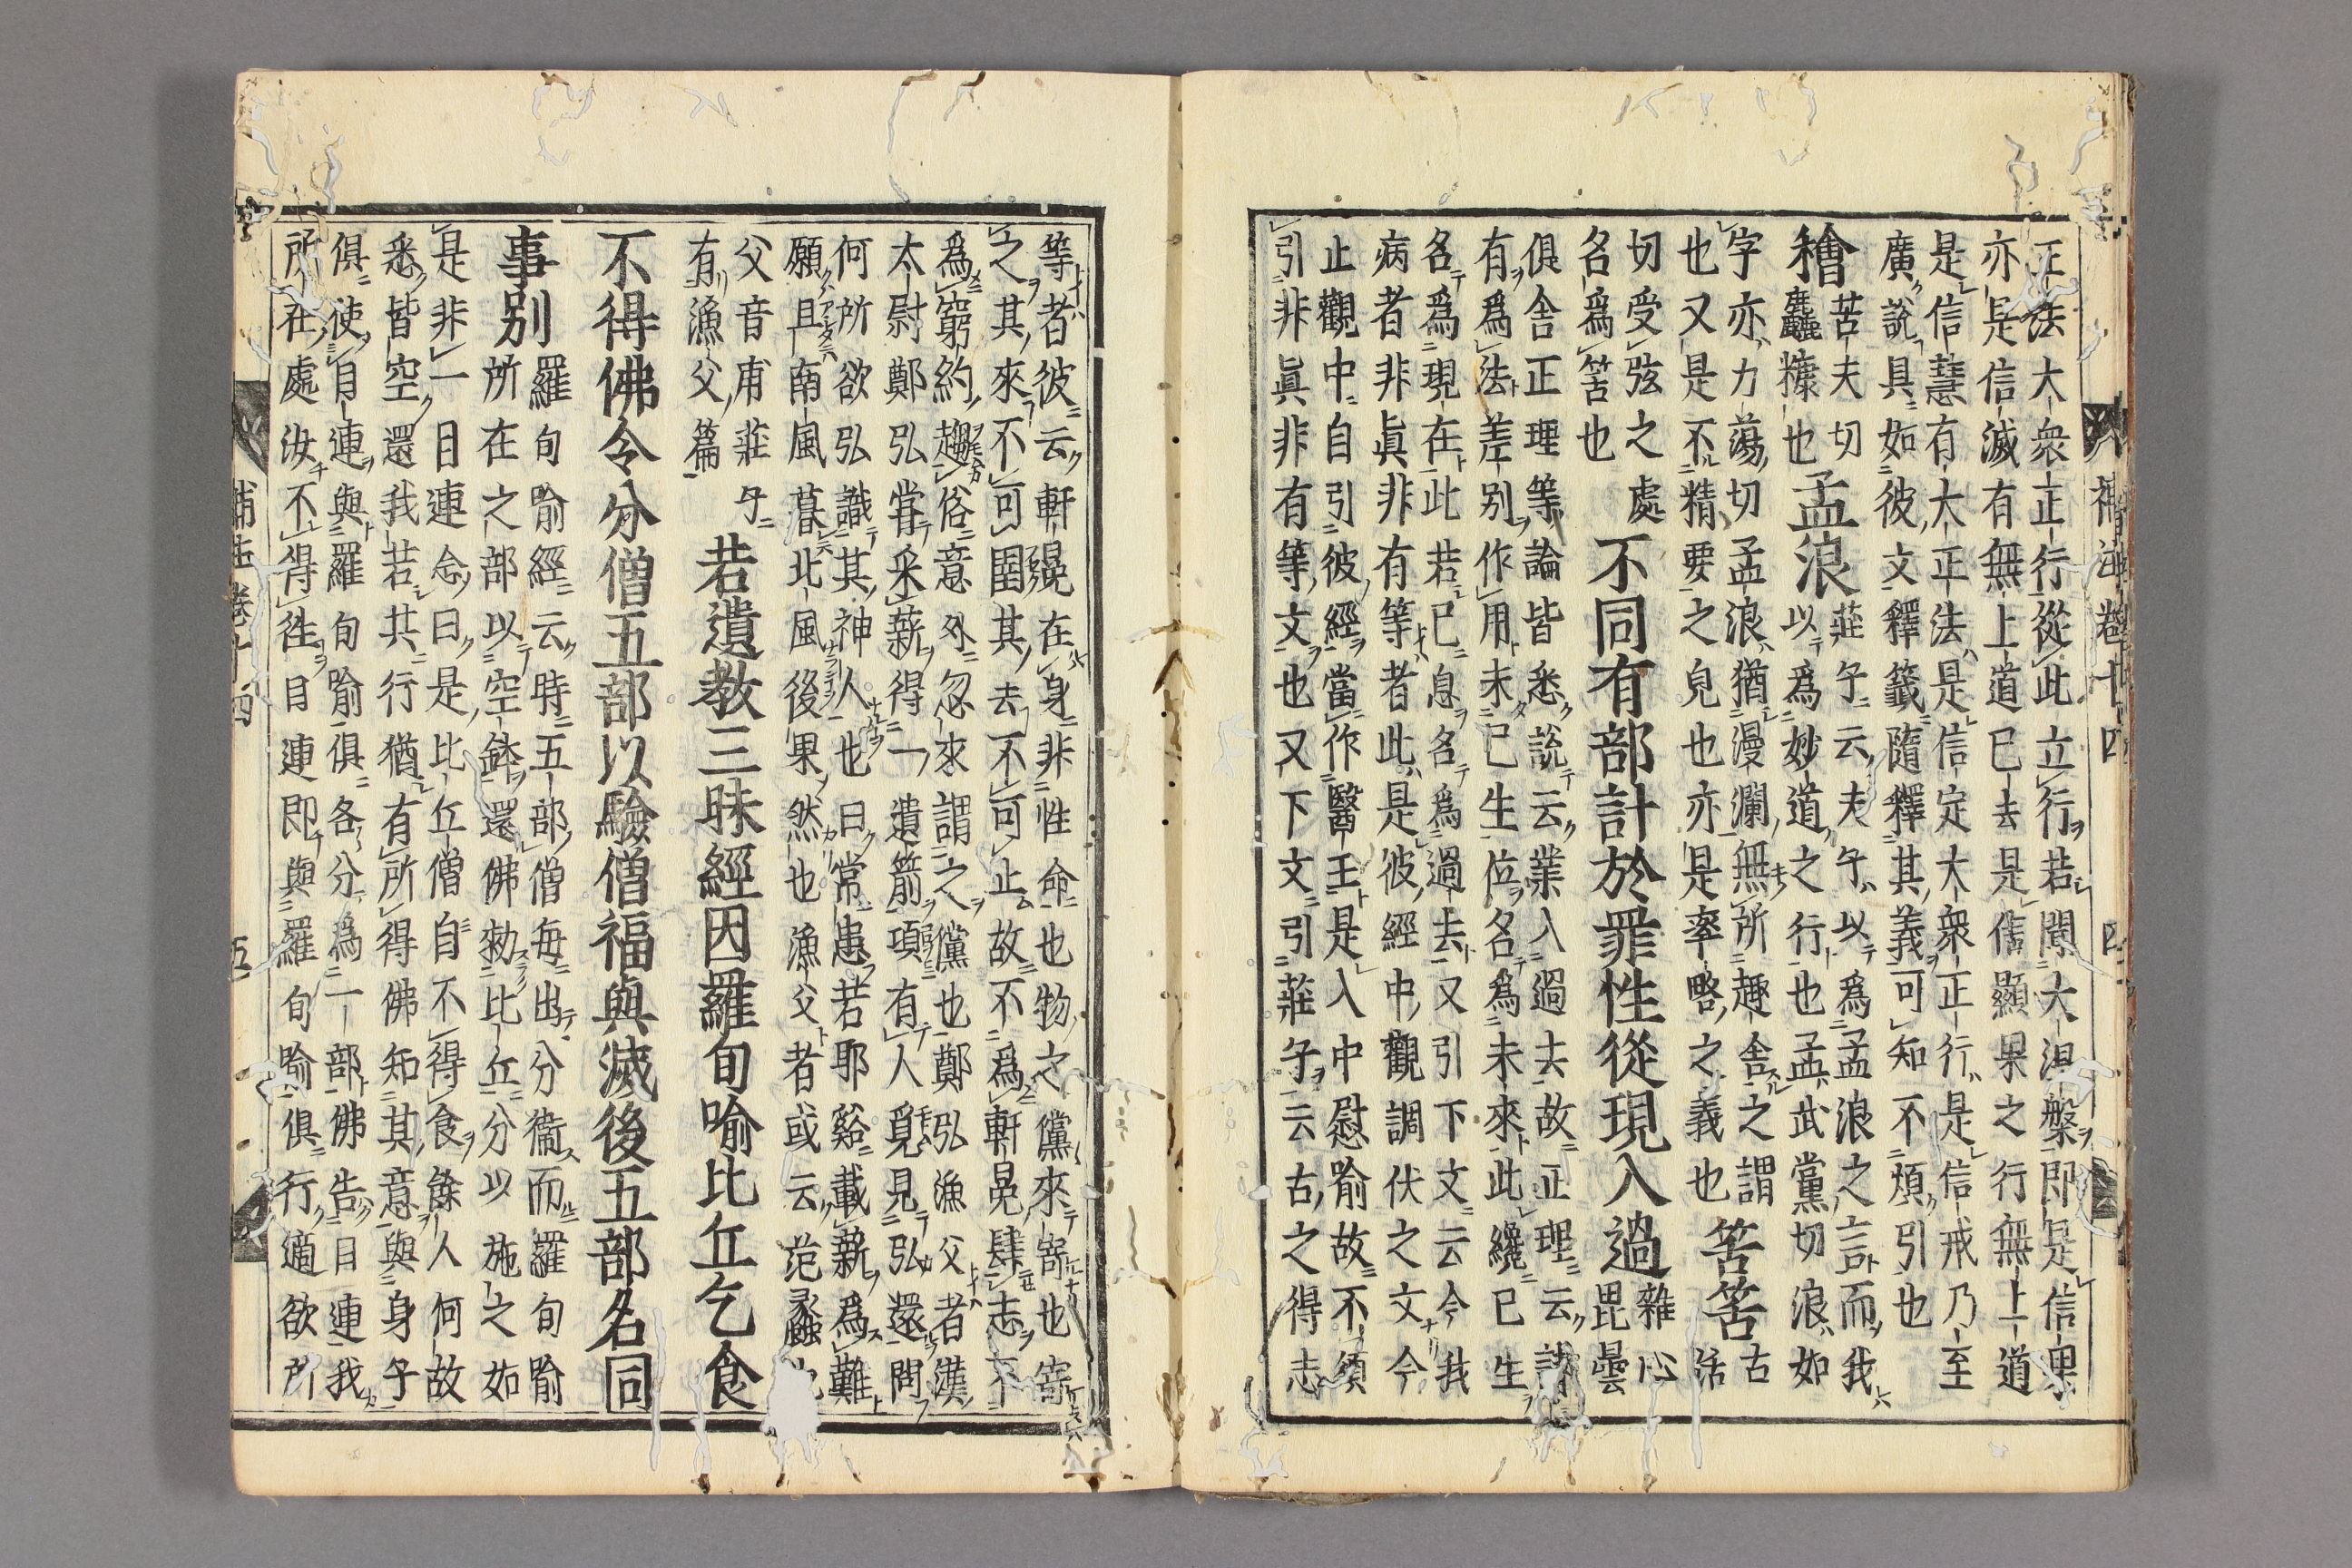 正法大衆正行從此立行若聞大涅槃即是信果
亦是信滅有無上道已去是信顯果之行無上道
是信慧有大正法是信定大衆正行是信戒乃至
廣說具如彼文釋籤隨釋其義可知不煩引也
䅩
苦夫切
麤糠也
孟浪
莊子云夫子以爲孟浪之言而我
以爲妙道之行也孟武黨切浪如
字亦力蕩切孟浪猶漫瀾無所趣舍之謂
也又是不精要之皃也亦是率略之義也
筈筈
古
活
切受弦之處
名爲筈也
不同有部計於罪性從現入過
雜心
毘曇
俱舍正理等論皆悉說云業入過去故正理云諸
有爲法差別作用未已生位名爲未來此纔已生
名爲現在此若已息名爲過去又引下文云今我
病者非眞非有等者此是彼經中觀調伏之文今
止觀中自引彼經當作醫王是入中慰喻故不須
引非眞非有等文也又下文引莊子云古之得志
等者彼云軒冕在身非性命也物之儻來寄也寄
之其來不可圉其去不可止故不爲軒冕肆志不
爲窮約趨俗意外忽來謂之儻也鄭弘漁父者漢
太尉鄭弘甞采薪得一遺箭項有人覓見弘還問
何所欲弘識其神人也曰常患若耶谿載薪爲難
願且南風暮北風後果然也漁父者或云范蠡也
父音甫莊子
有漁父篇
若遺教三昧經因羅旬喻比丘乞食
不得佛令分僧五部以驗僧福與滅後五部名同
事別
羅旬喻經云時五部僧每出分衞而羅旬喻
所在之部以空鉢還佛勑比丘分以施之如
是非一目連念曰是比丘僧自不得食餘人何故
悉皆空還我若其行猶有所得佛知其意與身子
俱使目連與羅旬喻俱各分爲一部佛告目連我
所在處汝不得徃目連即與羅旬喻俱行適欲所